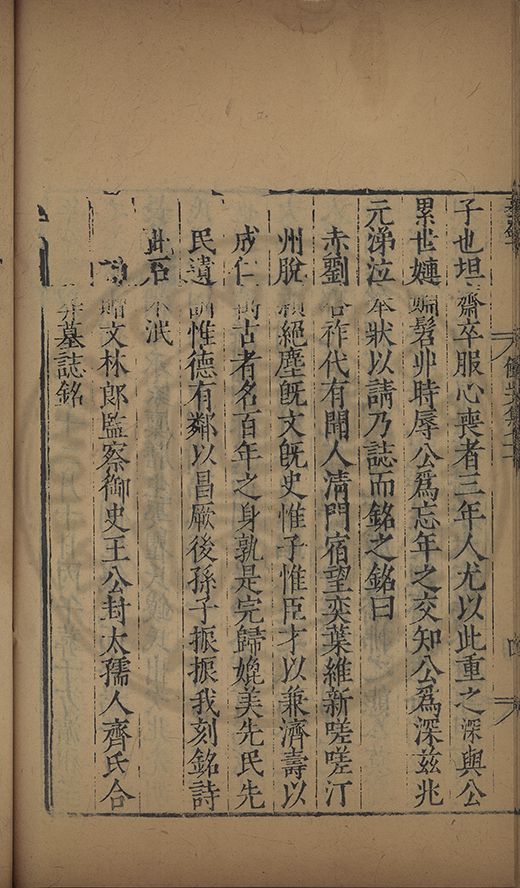 子也坦齋卒服心喪者三年人尤以此重之深與公
累世婣髫丱時辱公爲忘年之交知公爲深玆兆
元涕泣奉狀以請乃誌而銘之銘曰
赤劉啓祚代有聞人淸門宿望奕葉維新嗟嗟汀
州脫穎絕塵旣文旣史惟子惟臣才以兼濟壽以
成仁萬古者名百年之身孰是完歸媲美先民先
民遺訓惟德有鄰以昌厥後孫子振振我刻銘詩
此石不泯
贈文林郎監察御史王公封太孺人齊氏合
葬墓誌銘